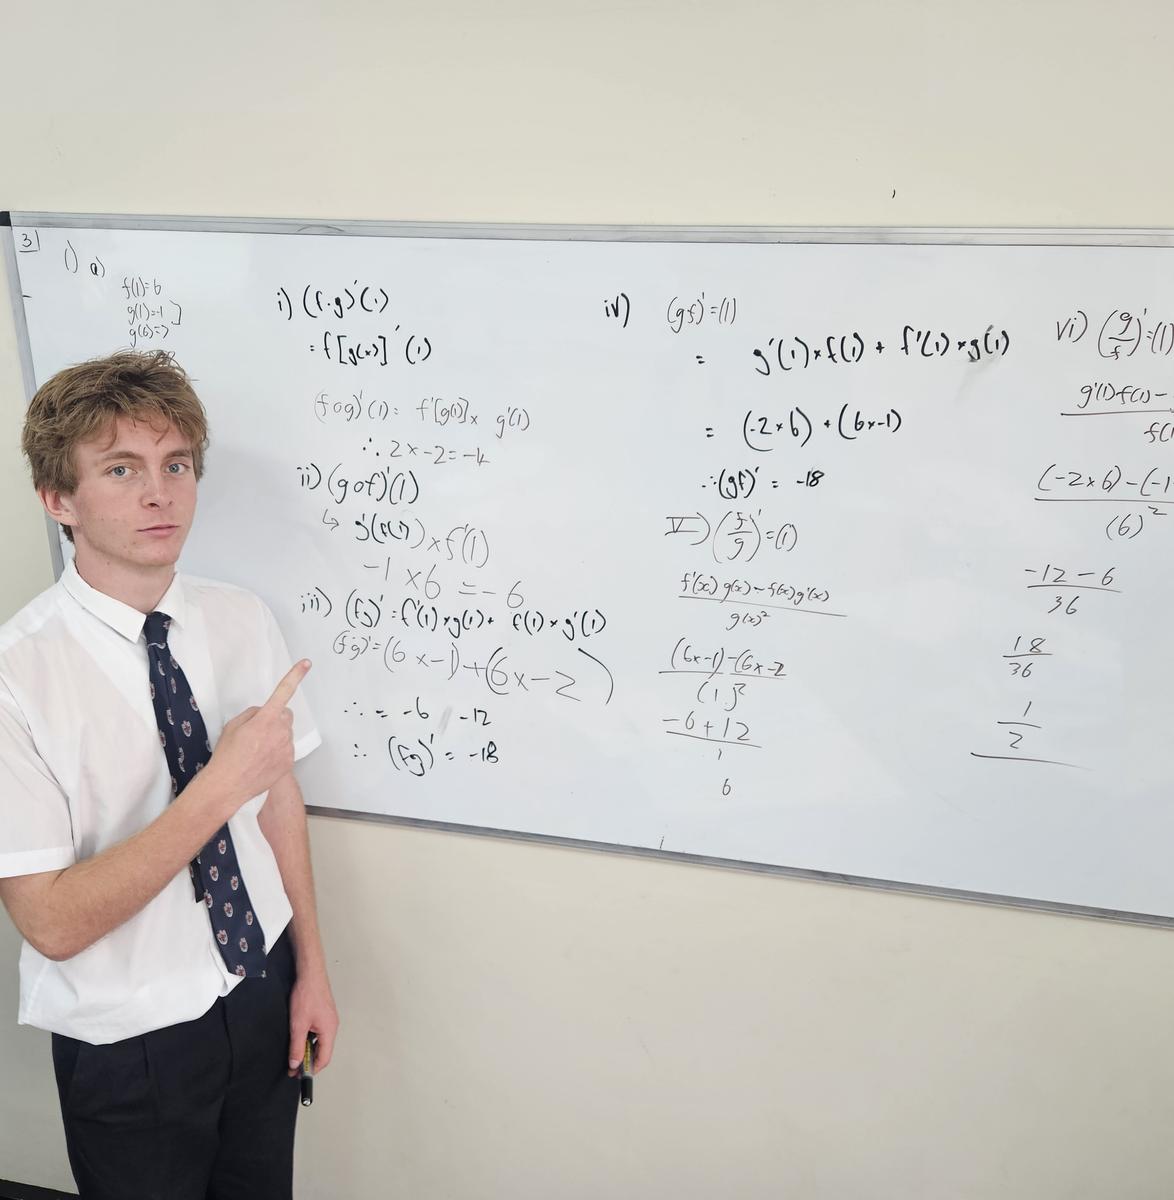 3)
i) a)
f(1)=6
g(1)=-1
g(6)=7
i) (f·g)'(1)
= f[g(x)]'(1)
(fog)'(1) = f'[g(1)] x g'(1)
∴ 2x-2=-4
ii) (gof)'(1)
↳ g'(f(1)) x f'(1)
-1 x 6 = -6
iii) (fg)' = f'(1) x g(1) + f(1) x g'(1)
(fg)' = (6x-1)+(6x-2)
∴ = -6 -12
∴ (fg)' = -18
iv) (gf)'=(1)
= g'(1) x f(1) + f'(1) x g(1)
= (-2 x 6) + (6x-1)
∴ (gf)' = -18
V) (f/g)'=(1)
f'(x)g(x)-f(x)g'(x)
g(x)²
(6x-1)-(6x-2
-6+12
1
6
vi) (g/f)'=(1)
g'(1)f(1)-
f(1
(-2x6)-(-1
(6)²
-12-6
36
18
36
1
2